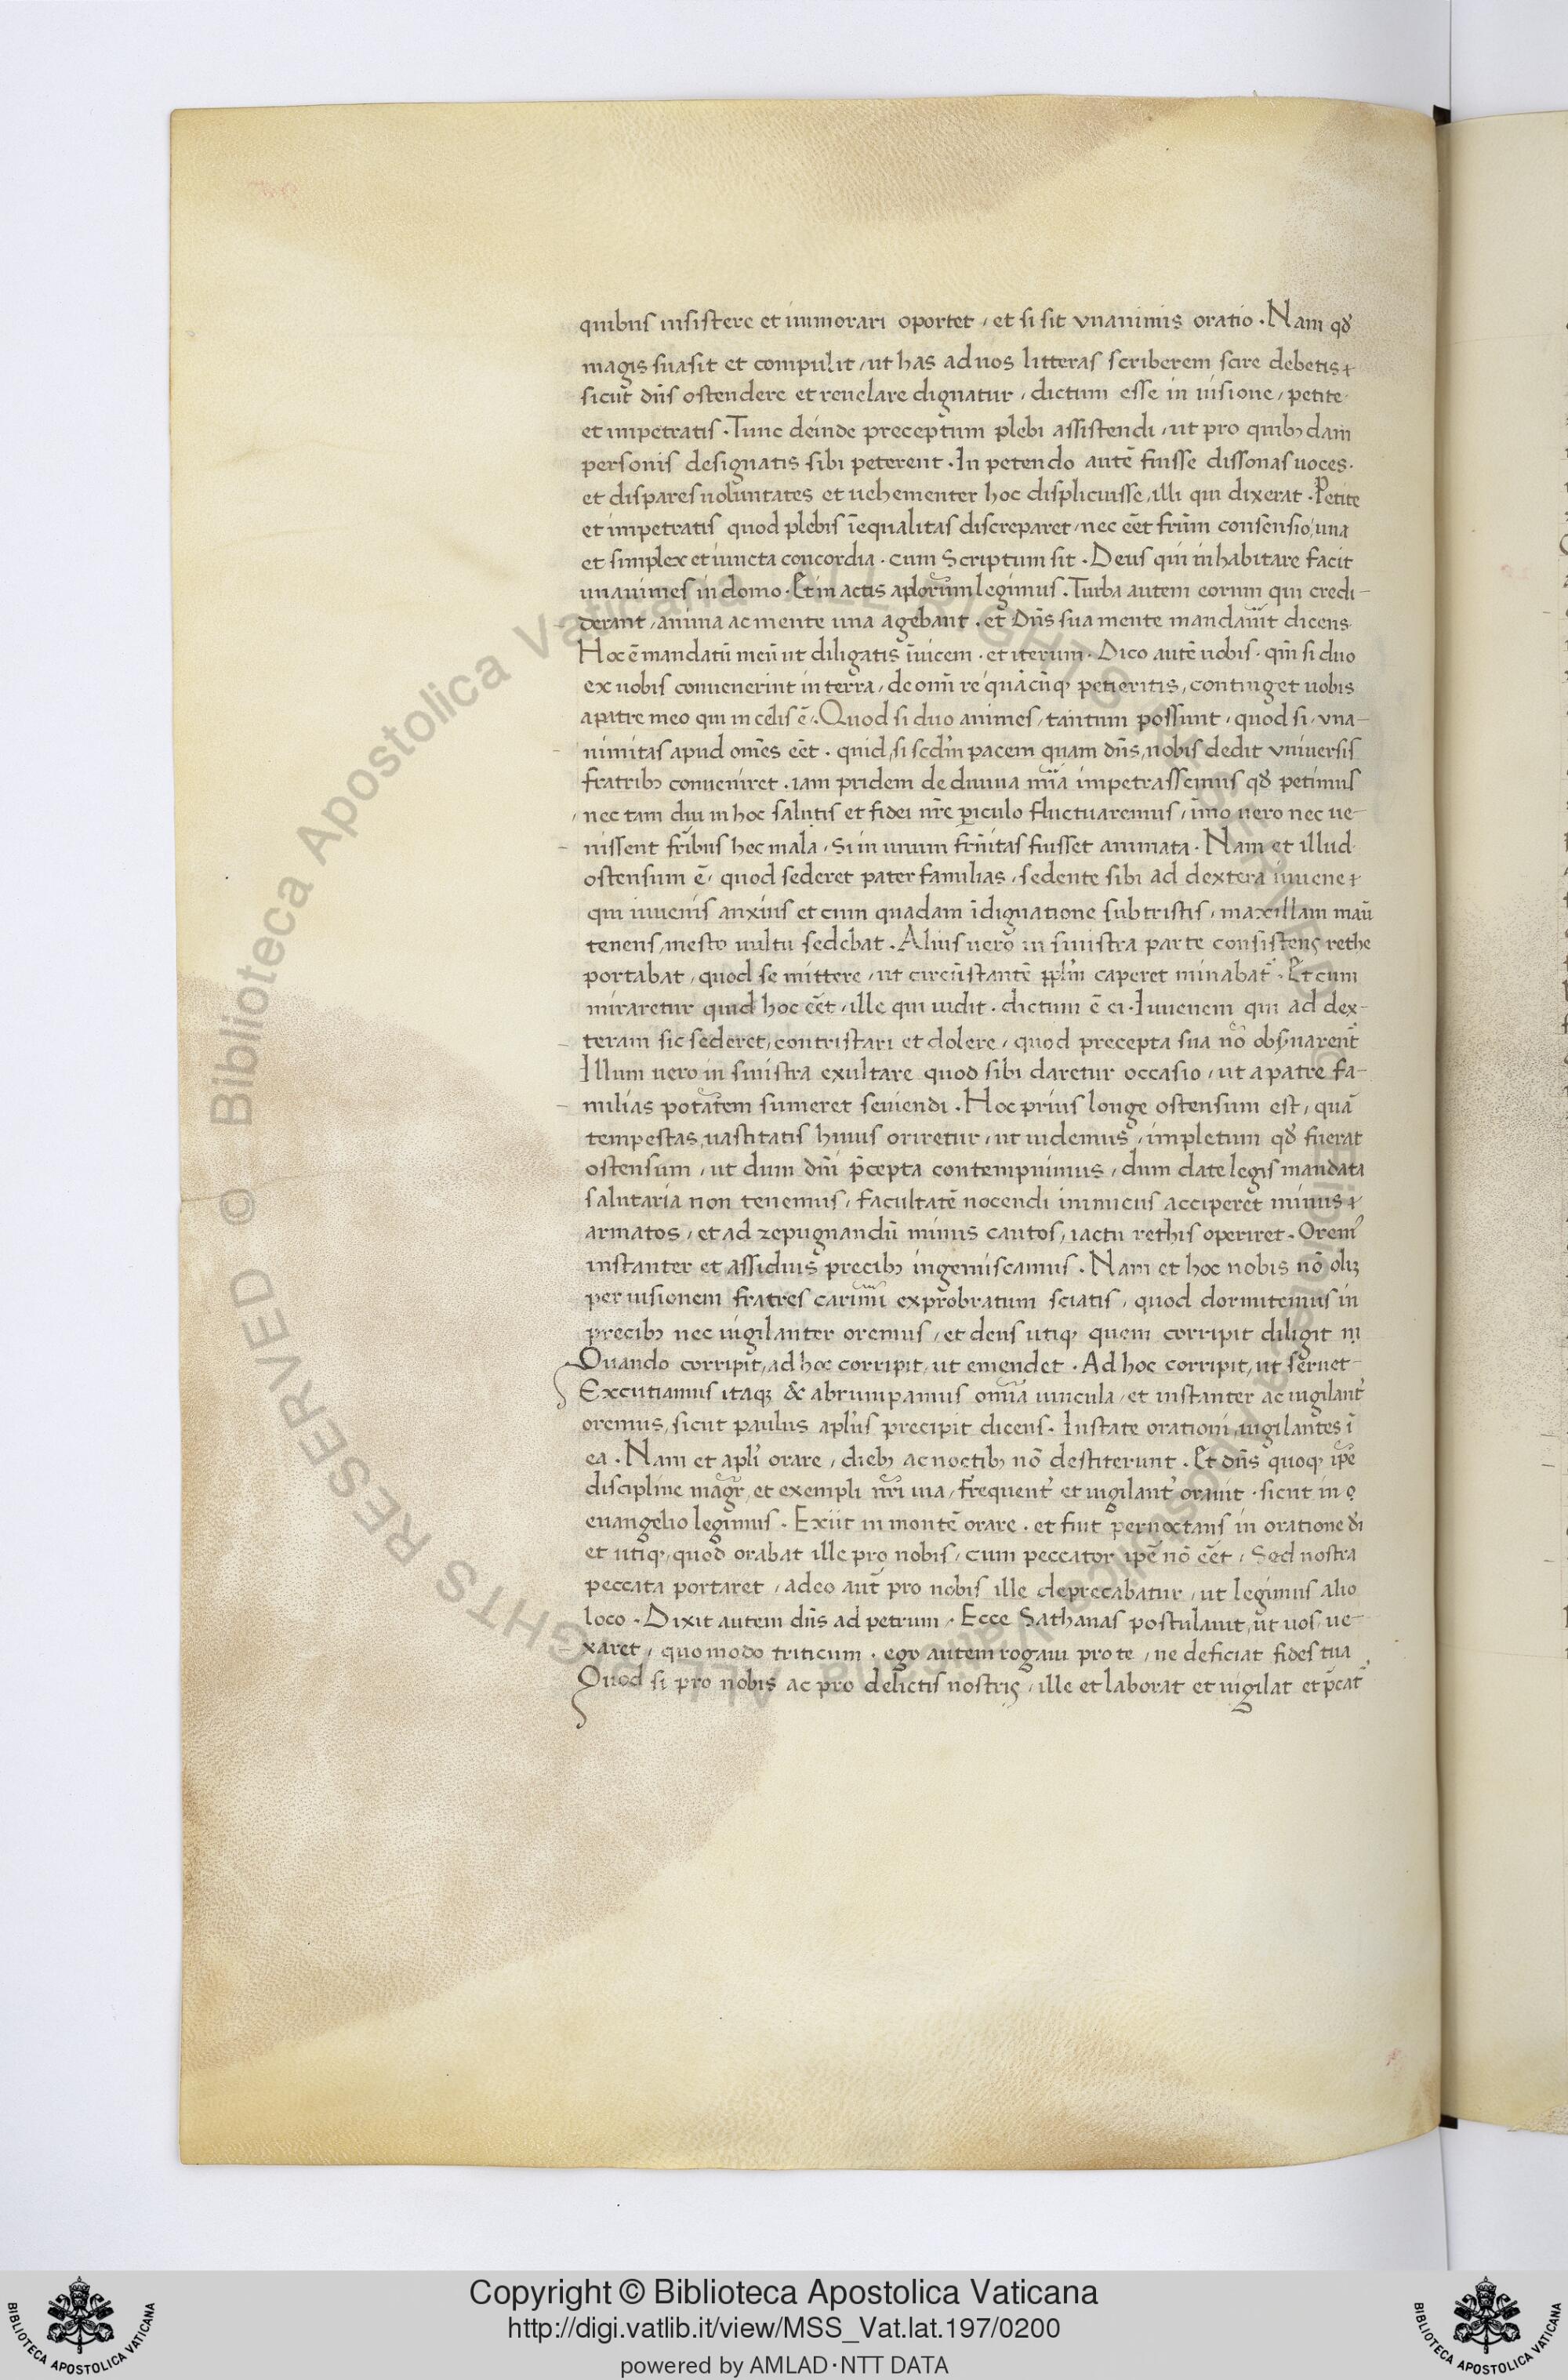 quibus insistere et immorari oportet / et si sit vnanimis oratio . Nam qđ
magis suasit et compulit / ut has ad uos litteras scriberem scire debetis
sicut dn̄s ostendere et reuelare dignatur / dictum esse in uisione / petite
et impetratis . Tunc deinde preceptum plebi assistendi / ut pro quibꝫ dam
personis designatis sibi peterent . In petendo autē fuisse dissonas uoces .
et dispares uoluntates et uehementer hoc displicuisse / illi qui dixerat . Petite
et impetratis quod plebis īequalitas discreparet / nec eēt frūm consensio / una
et simplex et iuncta concordia . cum Scriptum sit . Deus qui inhabitare facit
unanimes in domo . Et in actis aplorum legimus . Turba autem eorum qui credi-
derant / anima ac mente una agebant . et Dn̄s sua mente mandauit dicens
Hoc ē mandatū meū ut diligatis īuicem . et iterum . Dico autē uobis . qm̄ si duo
ex uobis conuenerint in terra / de omī re quācūqꝫ petieritis / continget uobis
a patre meo qui in celis ē . Quod si duo animes / tantum possunt / quod si / vna-
nimitas apud omēs eēt . quid / si scdm̄ pacem quam dn̄s / nobis dedit vniuersis
fratribꝫ conueniret . iam pridem de diuina mīa impetrassemus qđ petimus
/ nec tam diu in hoc salutis et fidei nr̄e ꝑiculo fluctuaremus / īmo uero nec ue-
nissent fribus hec mala / Si in unum frn̄itas fuisset animata . Nam et illud
ostensum ē / quod sederet pater familias / sedente sibi ad dextera iuuene
qui iuuenis anxius et cum quadam īdignatione subtristis / maxillam manū
tenens / mesto uultu sedebat . Alius uero in sinistra parte consistens rethe
portabat / quod se mittere / ut circūstantē pplm̄ caperet minabat̄ . Et cum
miraretur quid hoc eēt / ille qui uidit . dictum ē ei . Iuuenem qui ad dex-
teram sic sederet / contristari et dolere / quod precepta sua nō obsꝰuarent̄
Illum uero in sinistra exultare quod sibi daretur occasio / ut a patre fa-
milias potatem sumeret seuiendi . Hoc prius longe ostensum est / quā
tempestas / uastitatis huius oriretur / ut uidemus / impletum qđ fuerat
ostensum / ut dum dn̄i p̄cepta contempnimus / dum date legis mandata
salutaria non tenemus / facultatē nocendi inimicus acciperet minus
armatos / et ad repugnandū minus cautos / iactu rethis operiret . Oremꝰ
instanter et assiduis precibꝫ ingemiscamus . Nam et hoc nobis nō oliꝫ
per uisionem fratres carimi exprobratum sciatis / quod dormitemus in
precibꝫ nec uigilanter oremus / et deus utiqꝫ quem corripit diligit
Quando corripit / ad hoc corripit / ut emendet . Ad hoc corripit / ut seruet
Excutiamus itaqꝫ & abrumpamus omīa uincula / et instanter ac uigilant̄
oremus / sicut paulus aplus precipit dicens . Instate orationi / uigilantes ī
ea . Nam et apli orare / diebꝫ ac noctibꝫ nō destiterunt . Et dn̄s quoqꝫ ipē
discipline magr̄ / et exempli nr̄i uia / frequent̄ et uigilant̄ orauit . sicut in
euangelio legimus . Exiit in montē orare . et fuit pernoctans in oratione di
et utiqꝫ / quod orabat ille pro nobis / cum peccator ipē nō eēt / Sed nostra
peccata portaret / adeo aut̄ pro nobis ille deprecabatur / ut legimus alio
loco . Dixit autem dn̄s ad petrum . Ecce Sathanas postulauit / ut uos / ue-
xaret / quomodo triticum . ego autem rogaui pro te / ne deficiat fides tua
Quod si pro nobis ac pro delictis nostris / ille et laborat et uigilat et p̄cat̄
© Biblioteca Apostolica Vaticana ALL RIGHTS RESERVED
Copyright © Biblioteca Apostolica Vaticana
http://digi.vatlib.it/view/MSS_Vat.lat.197/0200
powered by AMLAD·NTT DATA
BIBLIOTECA APOSTOLICA VATICANA
BIBLIOTECA APOSTOLICA VATICANA